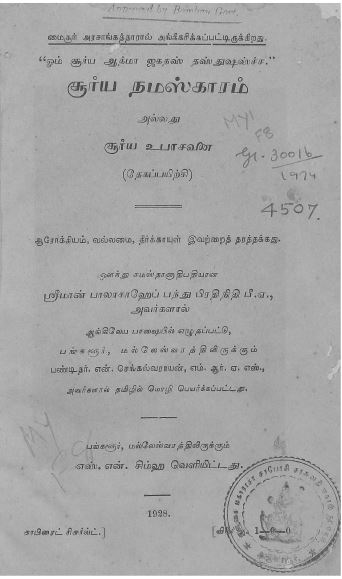 Approved by Bombay Govt.
மைசூர் அரசாங்கத்தாரால் அங்கீகரிக்கப்பட்டிருக்கிறது.
“ஓம் சூர்ய ஆத்மா ஜகதஸ் தஸ்துஷஸ்ச.”
சூர்ய நமஸ்காரம்
அல்லது
சூர்ய உபாசனை
(தேகப்பயிற்சி)
30016
1974
4507.
ஆரோக்கியம், வல்லமை, தீர்க்காயுள் இவற்றைத் தரத்தக்கது.
ஔந்து சமஸ்தானாதிபதியான
ஸ்ரீமான் பாலாசாஹேப் பந்து பிரதிநிதி பி.ஏ.,
அவர்களால்
ஆங்கிலேய பாஷையில் எழுதப்பட்டு,
பங்களூர், மல்லேஸ்வரத்திலிருக்கும்
பண்டிதர். என். செங்கல்வராயன், எம். ஆர். ஏ. எஸ்.,
அவர்களால் தமிழில் மொழி பெயர்க்கப்பட்டது.
பங்களூர், மல்லேஸ்வரத்திலிருக்கும்
எஸ். என். சிம்ஹ வெளியிட்டது.
1928.
காபிரைட் ரிசர்வ்ட்.]